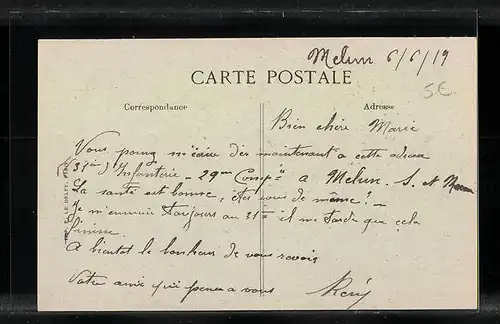 Melun 6/6/19
CARTE POSTALE
5€
Correspondance
Adresse
Bien chère Marie
Vous pouvez m'écrire dès maintenant a cette adresse
31ème d'Infanterie - 29me Comp. a Melun. S. et Marne
La santé est bonne, êtes vous de même? -
Je m'ennuie toujours au 31e il me tarde que cela
finisse.
A bientot le bonheur de vous revoir
Votre amie qui pense a vous